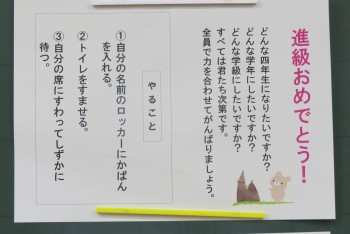 進級おめでとう！
どんな四年生になりたいですか？
どんな学年にしたいですか？
どんな学級にしたいですか？
すべては君たち次第です。
全員で力を合わせてがんばりましょう。
やること
①自分の名前のロッカーにかばん
を入れる。
②トイレをすませる。
③自分の席にすわってしずかに
待つ。